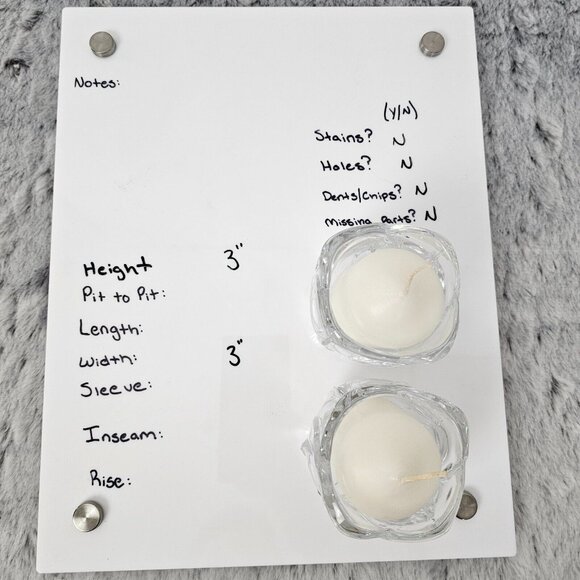 Notes:
(Y/N)
Stains? N
Holes? N
Dents/Chips? N
Missing Parts? N
Height 3"
Pit to Pit:
Length:
Width: 3"
Sleeve:
Inseam:
Rise: